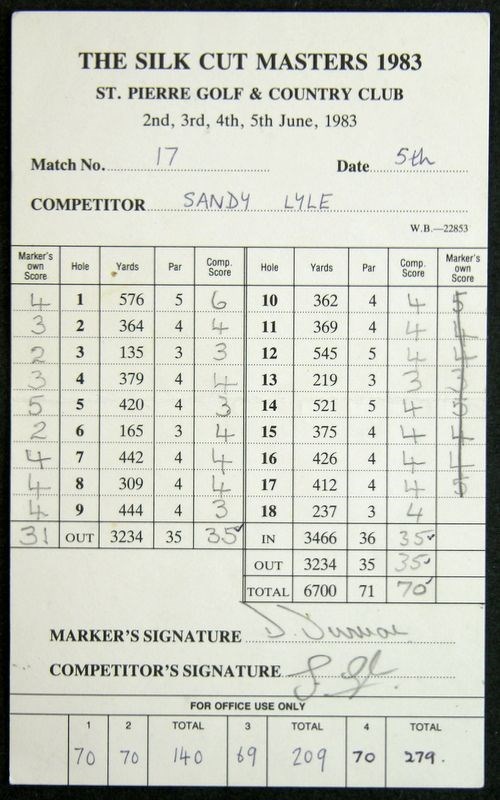 THE SILK CUT MASTERS 1983
ST. PIERRE GOLF & COUNTRY CLUB
2nd, 3rd, 4th, 5th June, 1983
Match No. 17 Date 5th
COMPETITOR SANDY LYLE
W.B.—22853
Marker's own Score Hole Yards Par Comp. Score Hole Yards Par Comp. Score Marker's own Score
4 1 576 5 6 10 362 4 4 5
3 2 364 4 4 11 369 4 4 4
2 3 135 3 3 12 545 5 4 4
3 4 379 4 4 13 219 3 3 3
5 5 420 4 3 14 521 5 4 5
2 6 165 3 4 15 375 4 4 4
4 7 442 4 4 16 426 4 4 4
4 8 309 4 4 17 412 4 4 5
4 9 444 4 3 18 237 3 4
31 OUT 3234 35 35 IN 3466 36 35
OUT 3234 35 35
TOTAL 6700 71 70
MARKER'S SIGNATURE
COMPETITOR'S SIGNATURE
FOR OFFICE USE ONLY
1 2 TOTAL 3 TOTAL 4 TOTAL
70 70 140 69 209 70 279.